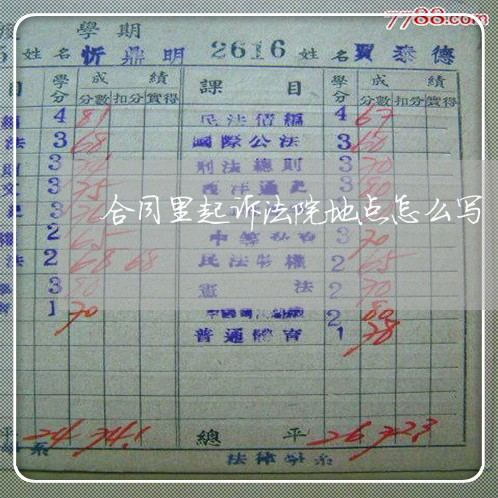 7788.com
學期
姓名 忻鼎明 2616 姓名 賈泰德
目 學分 成績 課目 學分 成績
分數 扣分 實得 分數 扣分 實得
4 81 民法債編 4 67
法 3 68 國際公法 3 60
3 刑法總則 3 70
3 75 西洋通史 3 80
合同里起诉法院地点怎么写
2 65 3 70
法 2 68 68 民法物權 2 65
3 80 憲法 2 70
1 70 2 80
普通體育 1 78
平 24 74.1 總平 26 72.3
系 法律學系